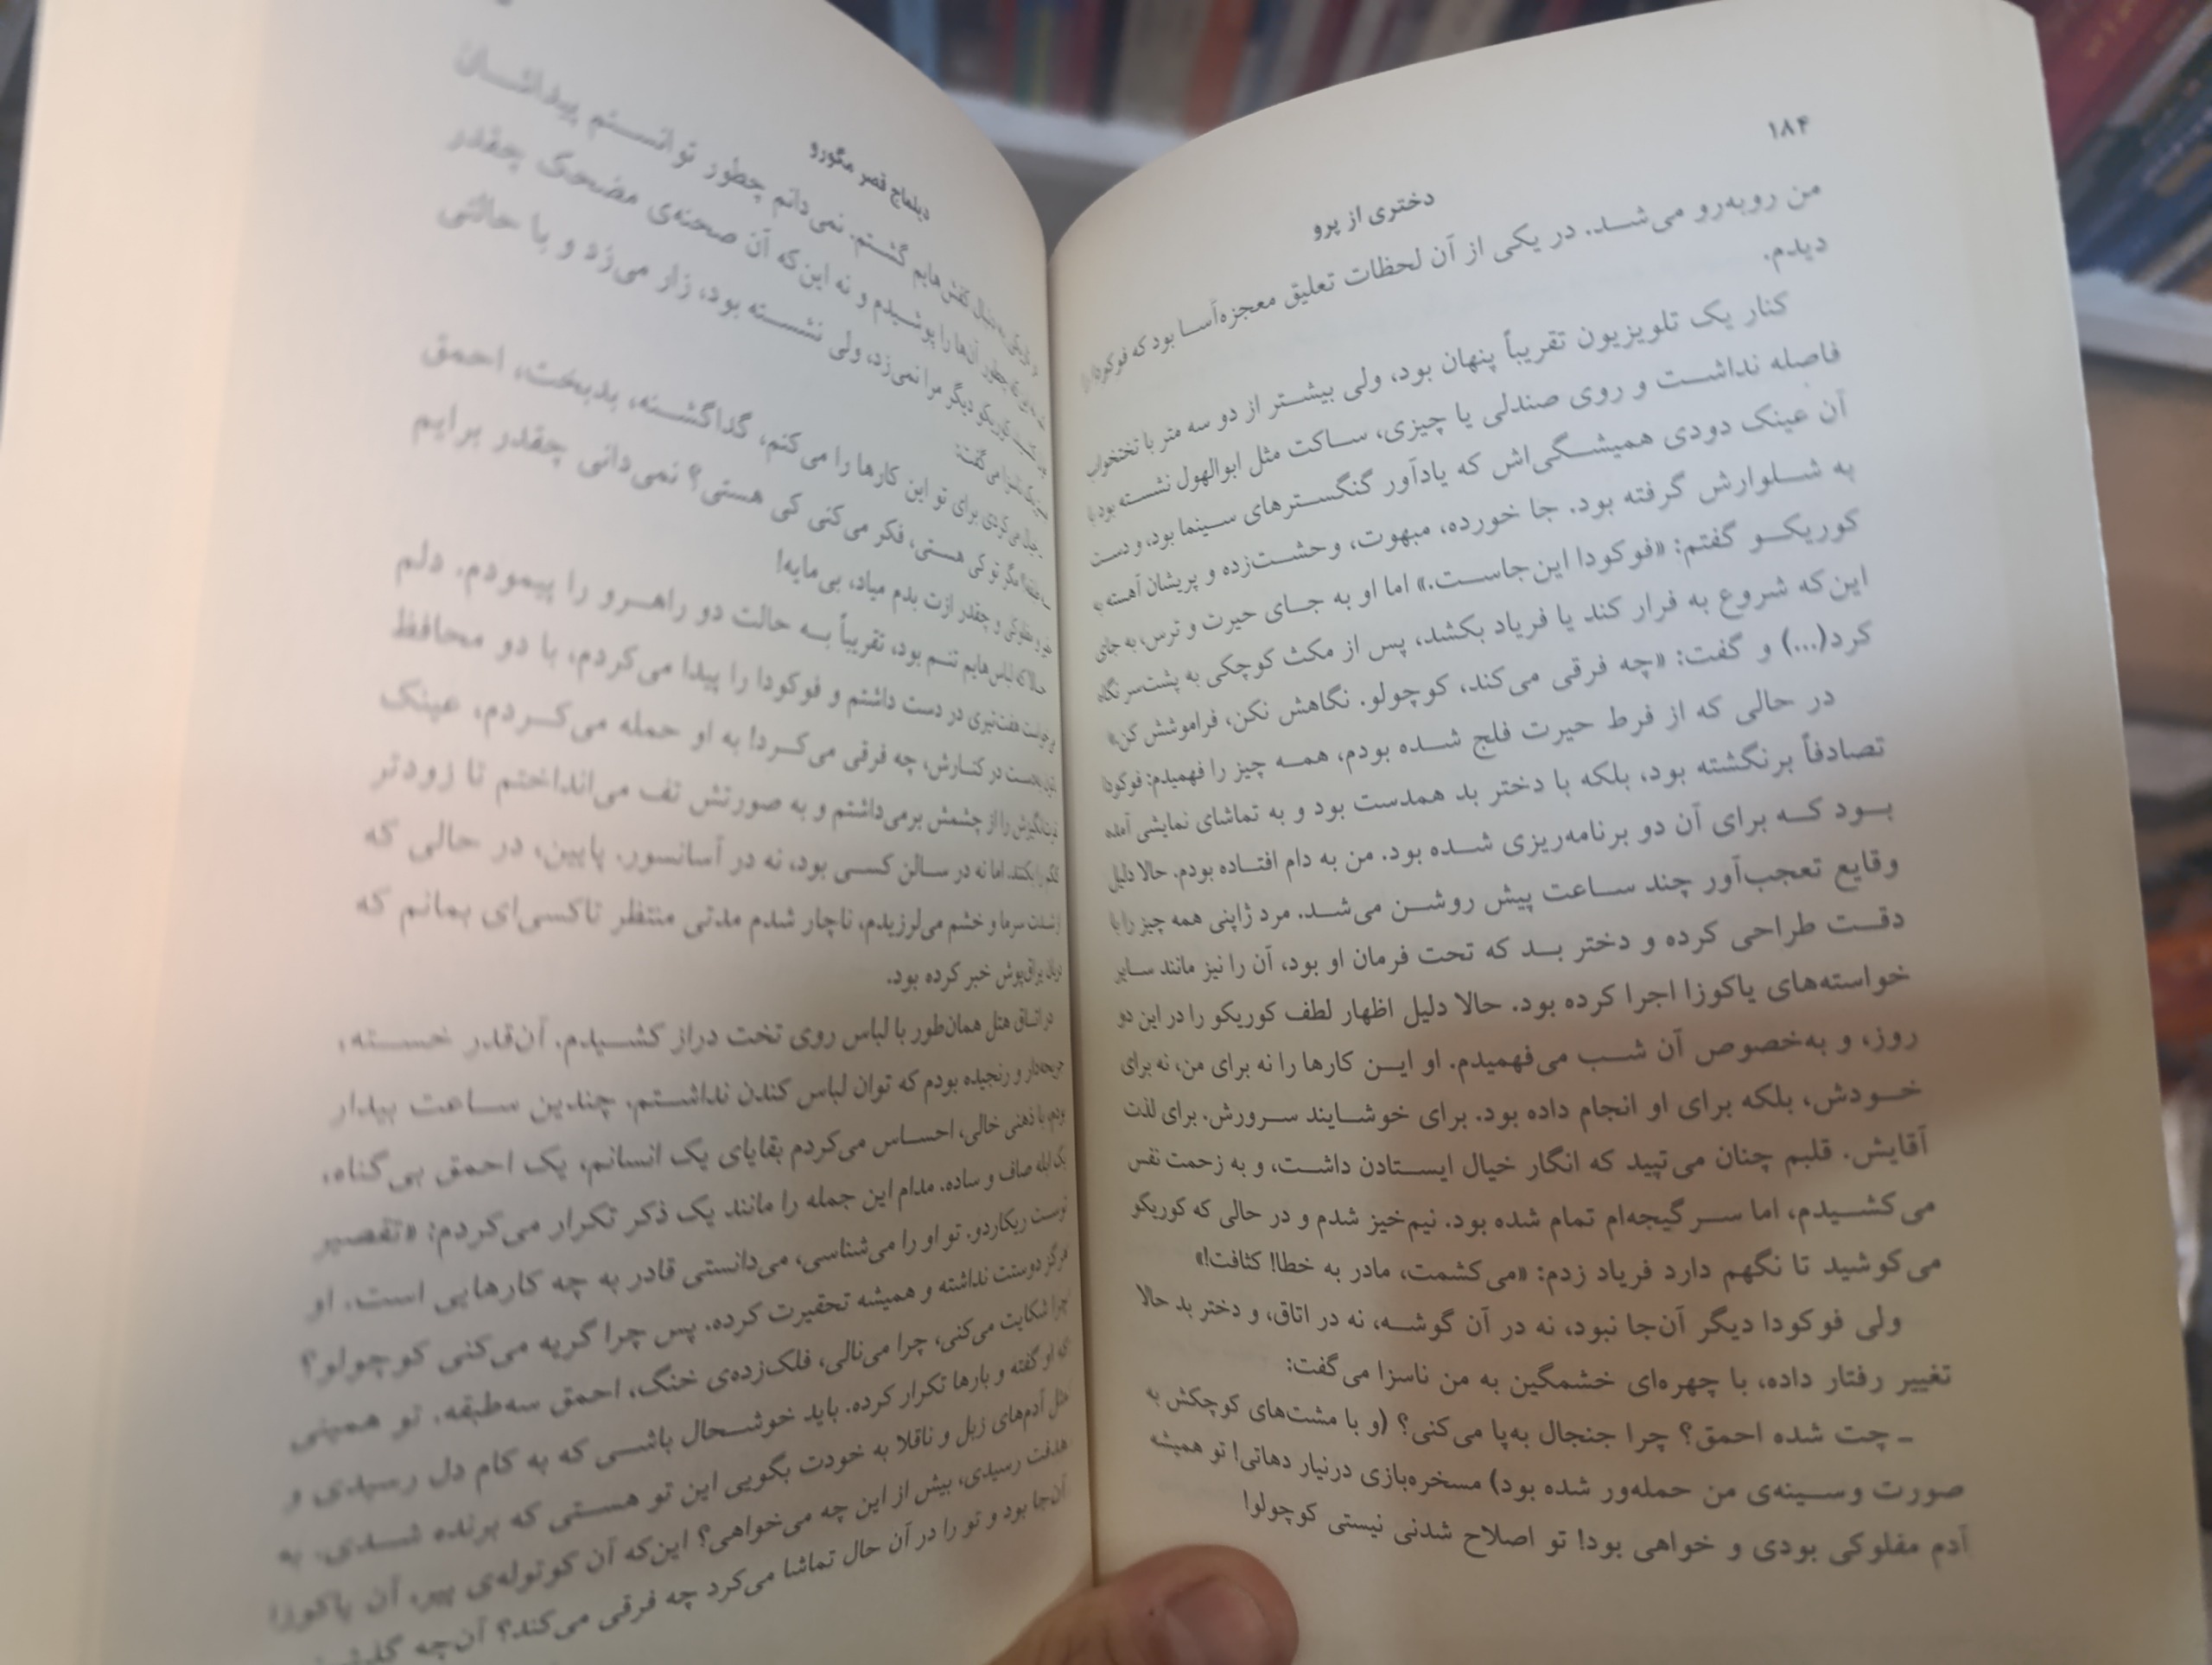 ۱۸۴
دختری از پرو
من روبه‌رو می‌شد. در یکی از آن لحظات تعلیق معجزه‌آسا بود که فوکودا را
دیدم.
کنار یک تلویزیون تقریباً پنهان بود، ولی بیشتر از دو سه متر با تختخواب
فاصله نداشت و روی صندلی یا چیزی، ساکت مثل ابوالهول نشسته بود با
آن عینک دودی همیشگی‌اش که یادآور گنگسترهای سینما بود، و دست
به شلوارش گرفته بود. جا خورده، مبهوت، وحشت‌زده و پریشان آهسته به
کوریکو گفتم: «فوکودا این‌جاست.» اما او به جای حیرت و ترس، به جای
این‌که شروع به فرار کند یا فریاد بکشد، پس از مکث کوچکی به پشت‌سر نگاه
کرد(...) و گفت: «چه فرقی می‌کند، کوچولو. نگاهش نکن، فراموشش کن.»
در حالی که از فرط حیرت فلج شده بودم، همه چیز را فهمیدم: فوکودا
تصادفاً برنگشته بود، بلکه با دختر بد همدست بود و به تماشای نمایشی آمده
بود که برای آن دو برنامه‌ریزی شده بود. من به دام افتاده بودم. حالا دلیل
وقایع تعجب‌آور چند ساعت پیش روشن می‌شد. مرد ژاپنی همه چیز را با
دقت طراحی کرده و دختر بد که تحت فرمان او بود، آن را نیز مانند سایر
خواسته‌های یاکوزا اجرا کرده بود. حالا دلیل اظهار لطف کوریکو را در این دو
روز، و به‌خصوص آن شب می‌فهمیدم. او این کارها را نه برای من، نه برای
خودش، بلکه برای او انجام داده بود. برای خوشایند سرورش. برای لذت
آقایش. قلبم چنان می‌تپید که انگار خیال ایستادن داشت، و به زحمت نفس
می‌کشیدم، اما سرگیجه‌ام تمام شده بود. نیم‌خیز شدم و در حالی که کوریکو
می‌کوشید تا نگهم دارد فریاد زدم: «می‌کشمت، مادر به خطا! کثافت!»
ولی فوکودا دیگر آن‌جا نبود، نه در آن گوشه، نه در اتاق، و دختر بد حالا
تغییر رفتار داده، با چهره‌ای خشمگین به من ناسزا می‌گفت:
ـ چت شده احمق؟ چرا جنجال به‌پا می‌کنی؟ (و با مشت‌های کوچکش به
صورت وسینه‌ی من حمله‌ور شده بود) مسخره‌بازی درنیار دهاتی! تو همیشه
آدم مفلوکی بودی و خواهی بود! تو اصلاح شدنی نیستی کوچولو!
دیلماج قصر مگورو
به دنبال کفش‌هایم گشتم. نمی‌دانم چطور توانستم پیداشان
چطور آن‌ها را پوشیدم و نه این‌که آن صحنه‌ی مضحک چقدر
کوریکو دیگر مرا نمی‌زد، ولی نشسته بود، زار می‌زد و با حالتی
می‌گفت:
ـ خیال می‌کردی برای تو این کارها را می‌کنم، گداگشنه، بدبخت، احمق
مگر تو کی هستی، فکر می‌کنی کی هستی؟ نمی‌دانی چقدر برایم
و مفلوکی و چقدر ازت بدم میاد، بی‌مایه!
حالا که لباس‌هایم تنم بود، تقریباً به حالت دو راهرو را پیمودم. دلم
می‌خواست هفت‌تیری در دست داشتم و فوکودا را پیدا می‌کردم، با دو محافظ
در کنارش، چه فرقی می‌کرد! به او حمله می‌کردم، عینک
را از چشمش برمی‌داشتم و به صورتش تف می‌انداختم تا زودتر
بکنند. اما نه در سالن کسی بود، نه در آسانسور. پایین، در حالی که
از شدت سرما و خشم می‌لرزیدم، ناچار شدم مدتی منتظر تاکسی‌ای بمانم که
دربان یراق‌پوش خبر کرده بود.
در اتاق هتل همان‌طور با لباس روی تخت دراز کشیدم. آن‌قدر خسته،
جریحه‌دار و رنجیده بودم که توان لباس کندن نداشتم. چندین ساعت بیدار
بودم، با ذهنی خالی، احساس می‌کردم بقایای یک انسانم، یک احمق بی‌گناه،
یک ابله صاف و ساده. مدام این جمله را مانند یک ذکر تکرار می‌کردم: «تقصیر
توست ریکاردو. تو او را می‌شناسی، می‌دانستی قادر به چه کارهایی است. او
هرگز دوستت نداشته و همیشه تحقیرت کرده. پس چرا گریه می‌کنی کوچولو؟
چرا شکایت می‌کنی، چرا می‌نالی، فلک‌زده‌ی خنگ، احمق سه‌طبقه. تو همینی
که او گفته و بارها تکرار کرده. باید خوشحال باشی که به کام دل رسیدی و
مثل آدم‌های زبل و ناقلا به خودت بگویی این تو هستی که برنده شدی. به
هدفت رسیدی، بیش از این چه می‌خواهی؟ این‌که آن کوتوله‌ی پیر، آن یاکوزا
آن‌جا بود و تو را در آن حال تماشا می‌کرد چه فرقی می‌کند؟ آن‌چه